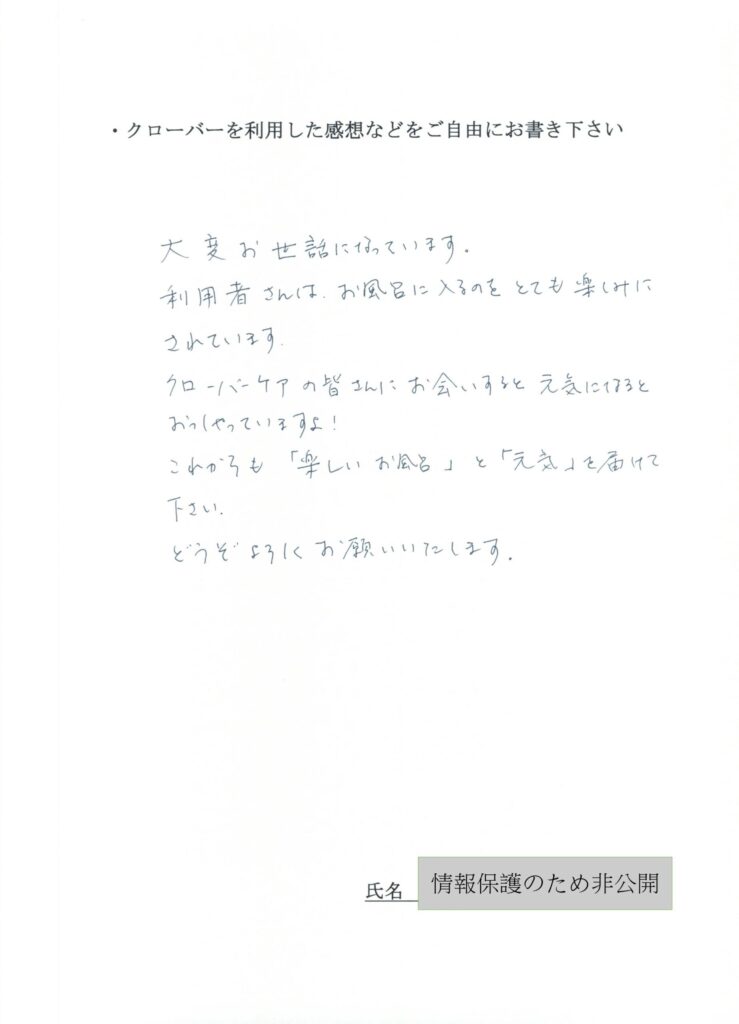 ・クローバーを利用した感想などをご自由にお書き下さい
大変お世話になっています。
利用者さんは、お風呂に入るのをとても楽しみに
されています。
クローバーケアの皆さんにお会いすると元気になると
おっしゃっていますよ!
これからも「楽しいお風呂」と「元気」を届けて
下さい。
どうぞよろしくお願いいたします。
氏名 情報保護のため非公開